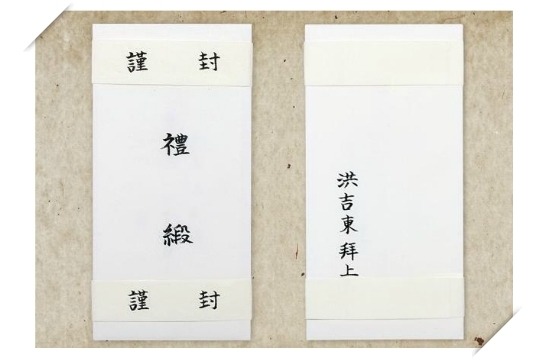 謹 封
禮
緞
謹 封
洪吉東 拜上